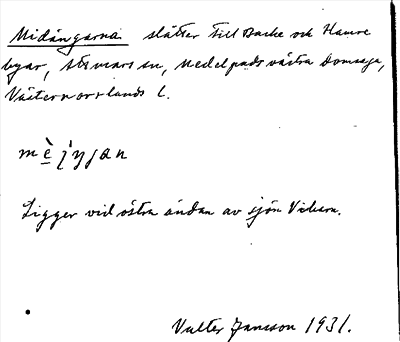 Midängarna slåtter till Backe och Hamre
byar, Stenars sn, Medelpads västra domsaga,
Västernorrlands l.
Ligger vid östra ändan av sjön
Valter Jansson 1931.